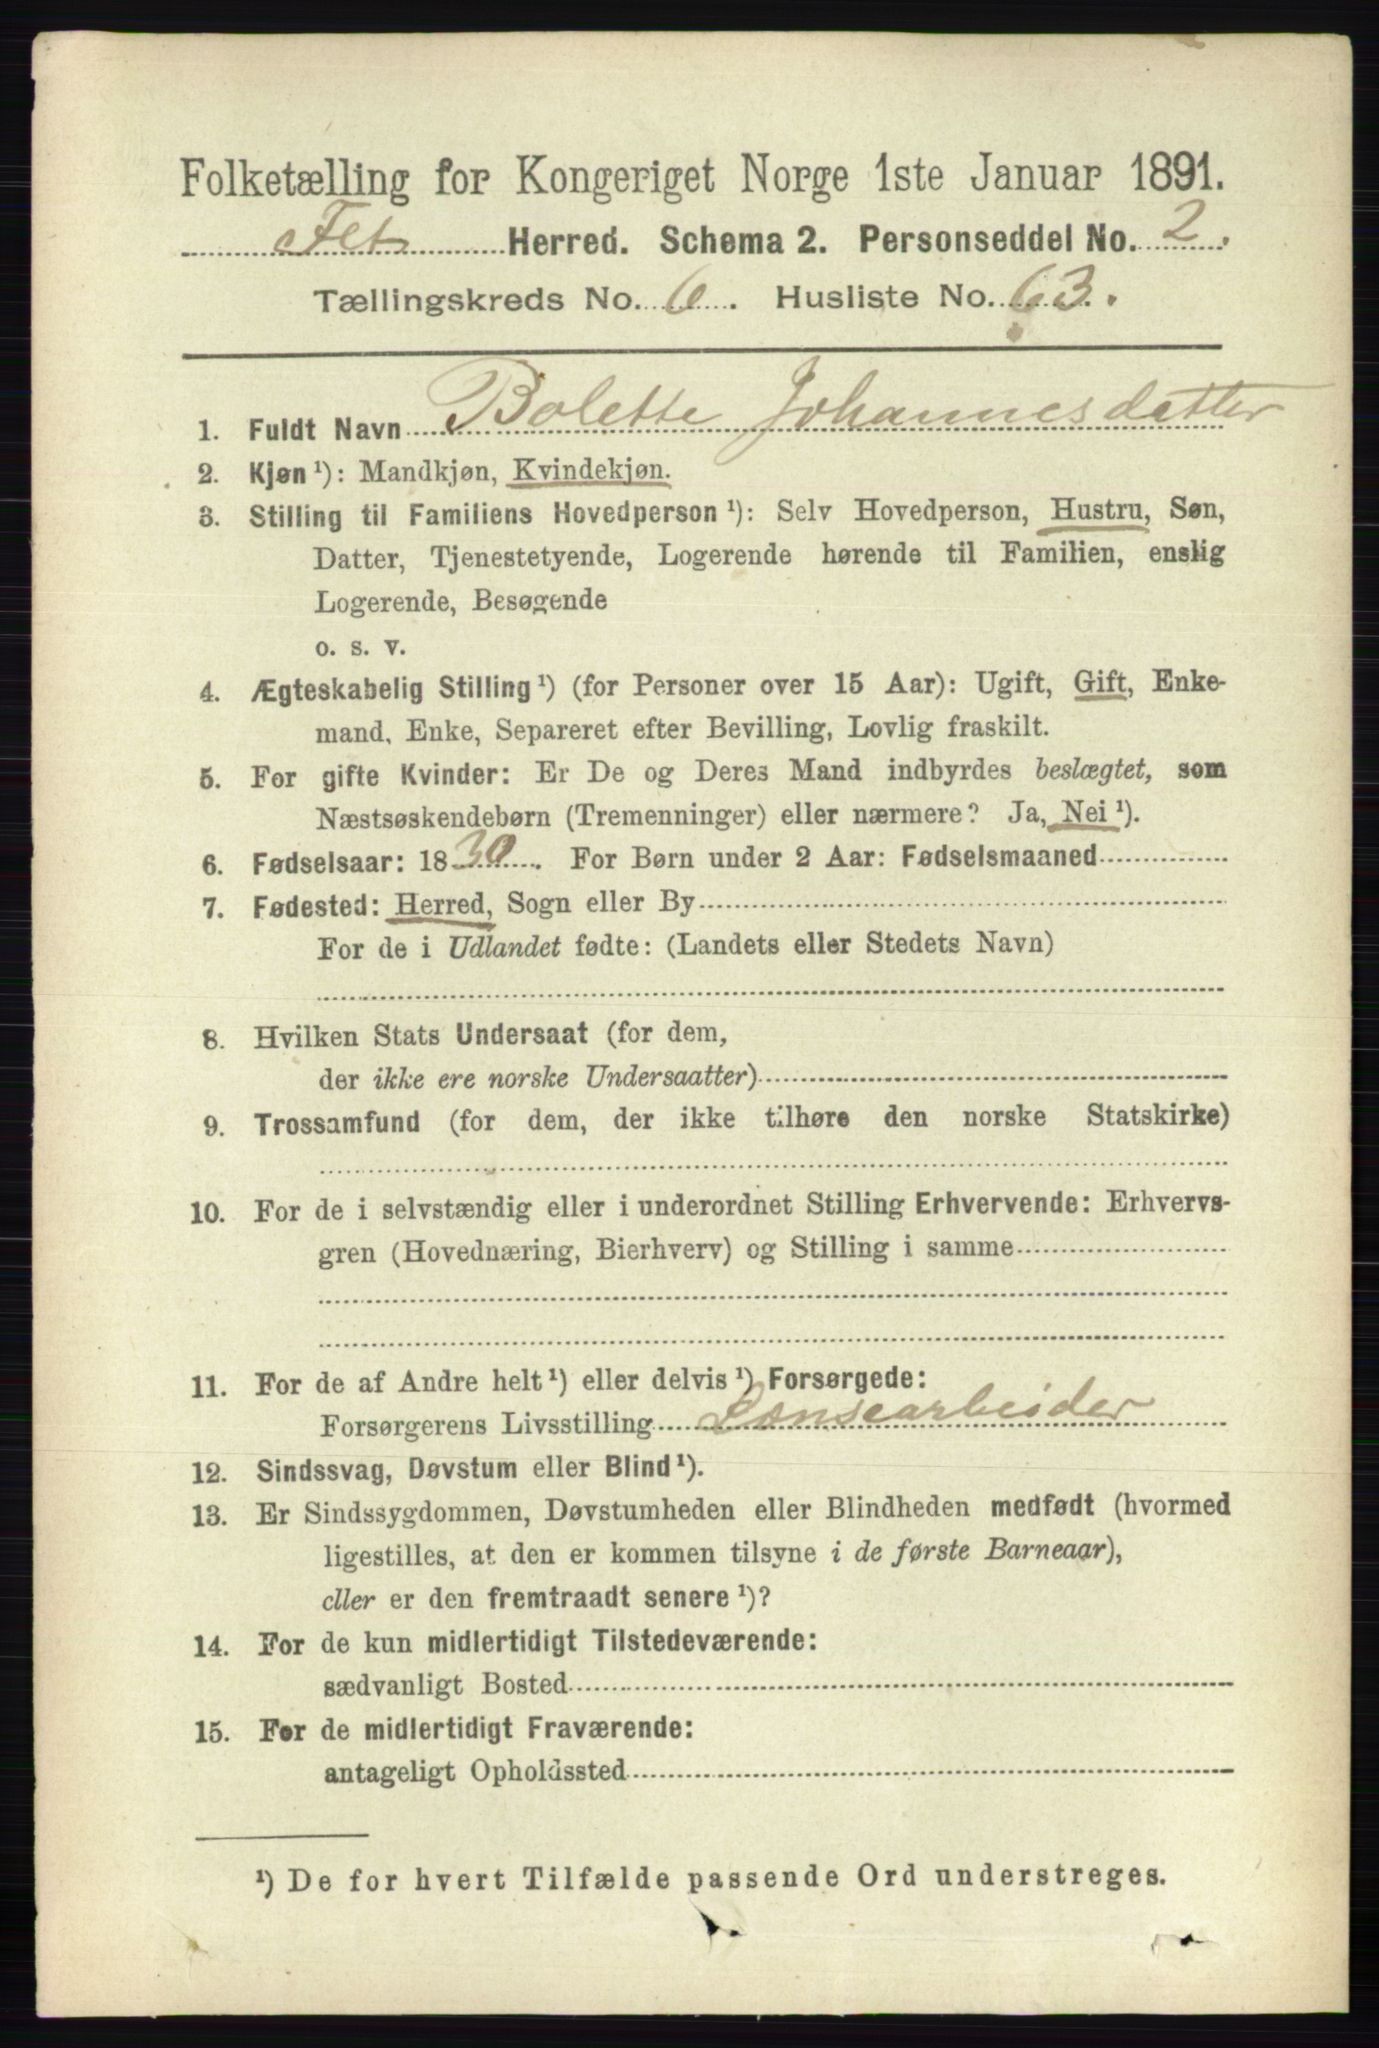 Folketælling for Kongeriget Norge 1ste Januar 1891.
Fet Herred. Schema 2. Personseddel No. 2.
Tællingskreds No. 6. Husliste No. 63.
1. Fuldt Navn Bolette Johannesdatter
2. Kjøn ¹): Mandkjøn, Kvindekjøn.
3. Stilling til Familiens Hovedperson ¹): Selv Hovedperson, Hustru, Søn,
Datter, Tjenestetyende, Logerende hørende til Familien, enslig
Logerende, Besøgende
o. s. v.
4. Ægteskabelig Stilling ¹) (for Personer over 15 Aar): Ugift, Gift, Enke-
mand, Enke, Separeret efter Bevilling, Lovlig fraskilt.
5. For gifte Kvinder: Er De og Deres Mand indbyrdes beslægtet, som
Næstsøskendebørn (Tremenninger) eller nærmere? Ja, Nei ¹).
6. Fødselsaar: 1830. For Børn under 2 Aar: Fødselsmaaned
7. Fødested: Herred, Sogn eller By
For de i Udlandet fødte: (Landets eller Stedets Navn)
8. Hvilken Stats Undersaat (for dem,
der ikke ere norske Undersaatter)
9. Trossamfund (for dem, der ikke tilhøre den norske Statskirke)
10. For de i selvstændig eller i underordnet Stilling Erhvervende: Erhvervs-
gren (Hovednæring, Bierhverv) og Stilling i samme
11. For de af Andre helt ¹) eller delvis ¹) Forsørgede:
Forsørgerens Livsstilling Lænsearbeider
12. Sindssvag, Døvstum eller Blind ¹).
13. Er Sindssygdommen, Døvstumheden eller Blindheden medfødt (hvormed
ligestilles, at den er kommen tilsyne i de første Barneaar),
eller er den fremtraadt senere ¹)?
14. For de kun midlertidigt Tilstedeværende:
sædvanligt Bosted
15. For de midlertidigt Fraværende:
antageligt Opholdssted
¹) De for hvert Tilfælde passende Ord understreges.